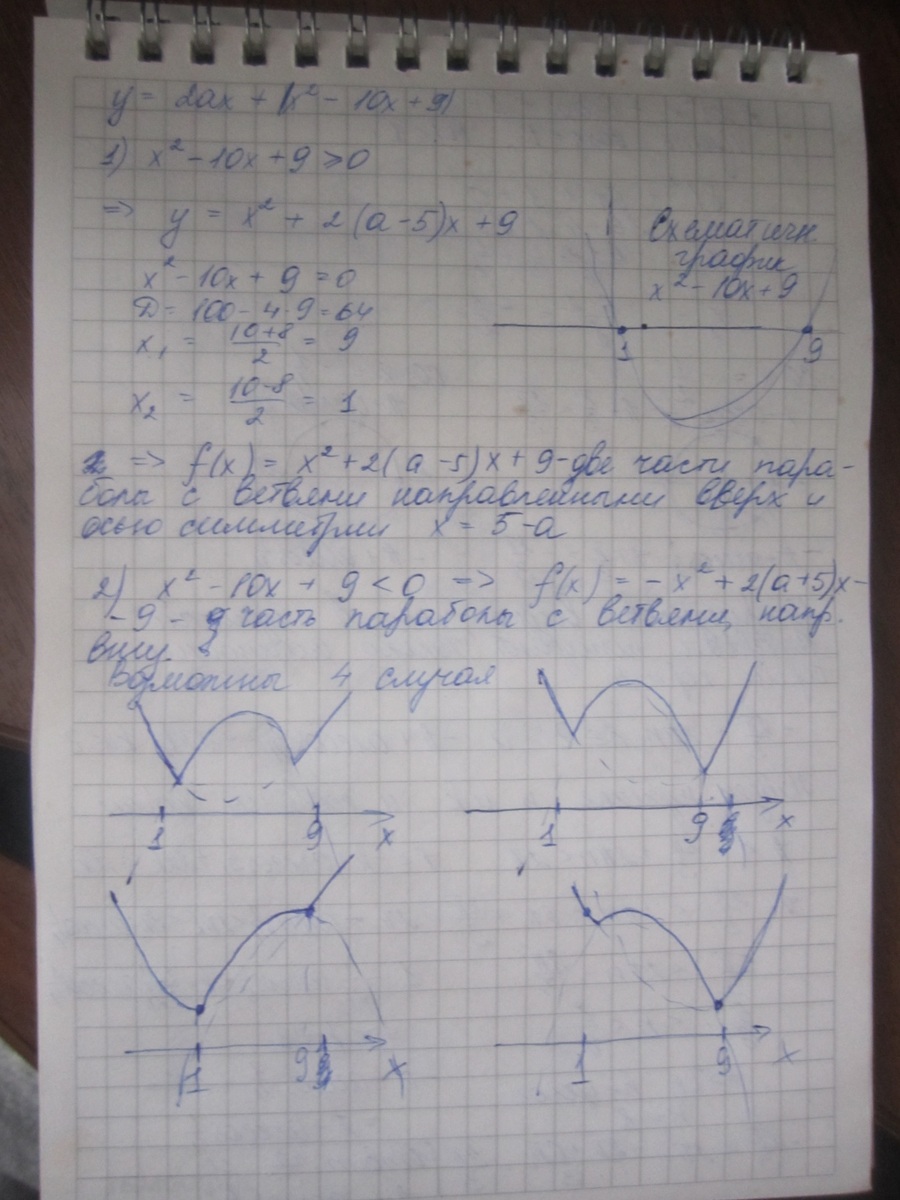 y = 2ax + |x² - 10x + 9|
1) x² - 10x + 9 ≥ 0
=> y = x² + 2(a-5)x + 9
Схематичн.
график
x² - 10x + 9
x² - 10x + 9 = 0
D = 100 - 4·9 = 64
x₁ = (10+8)/2 = 9
x₂ = (10-8)/2 = 1
1 9
=> f(x) = x² + 2(a-5)x + 9 - две части пара-
болы с ветвями направленными вверх и
осью симметрии x = 5-a
2) x² - 10x + 9 < 0 => f(x) = -x² + 2(a+5)x -
- 9 - часть параболы с ветвями напр.
вниз
Возможны 4 случая
1 9 x
1 9 x
1 9 x
1 9 x